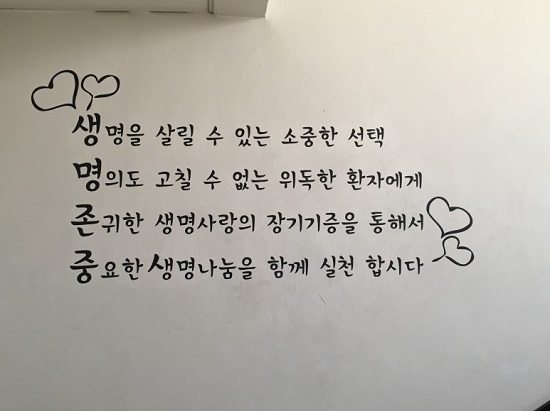 생명을 살릴 수 있는 소중한 선택
명의도 고칠 수 없는 위독한 환자에게
존귀한 생명사랑의 장기기증을 통해서
중요한 생명나눔을 함께 실천 합시다